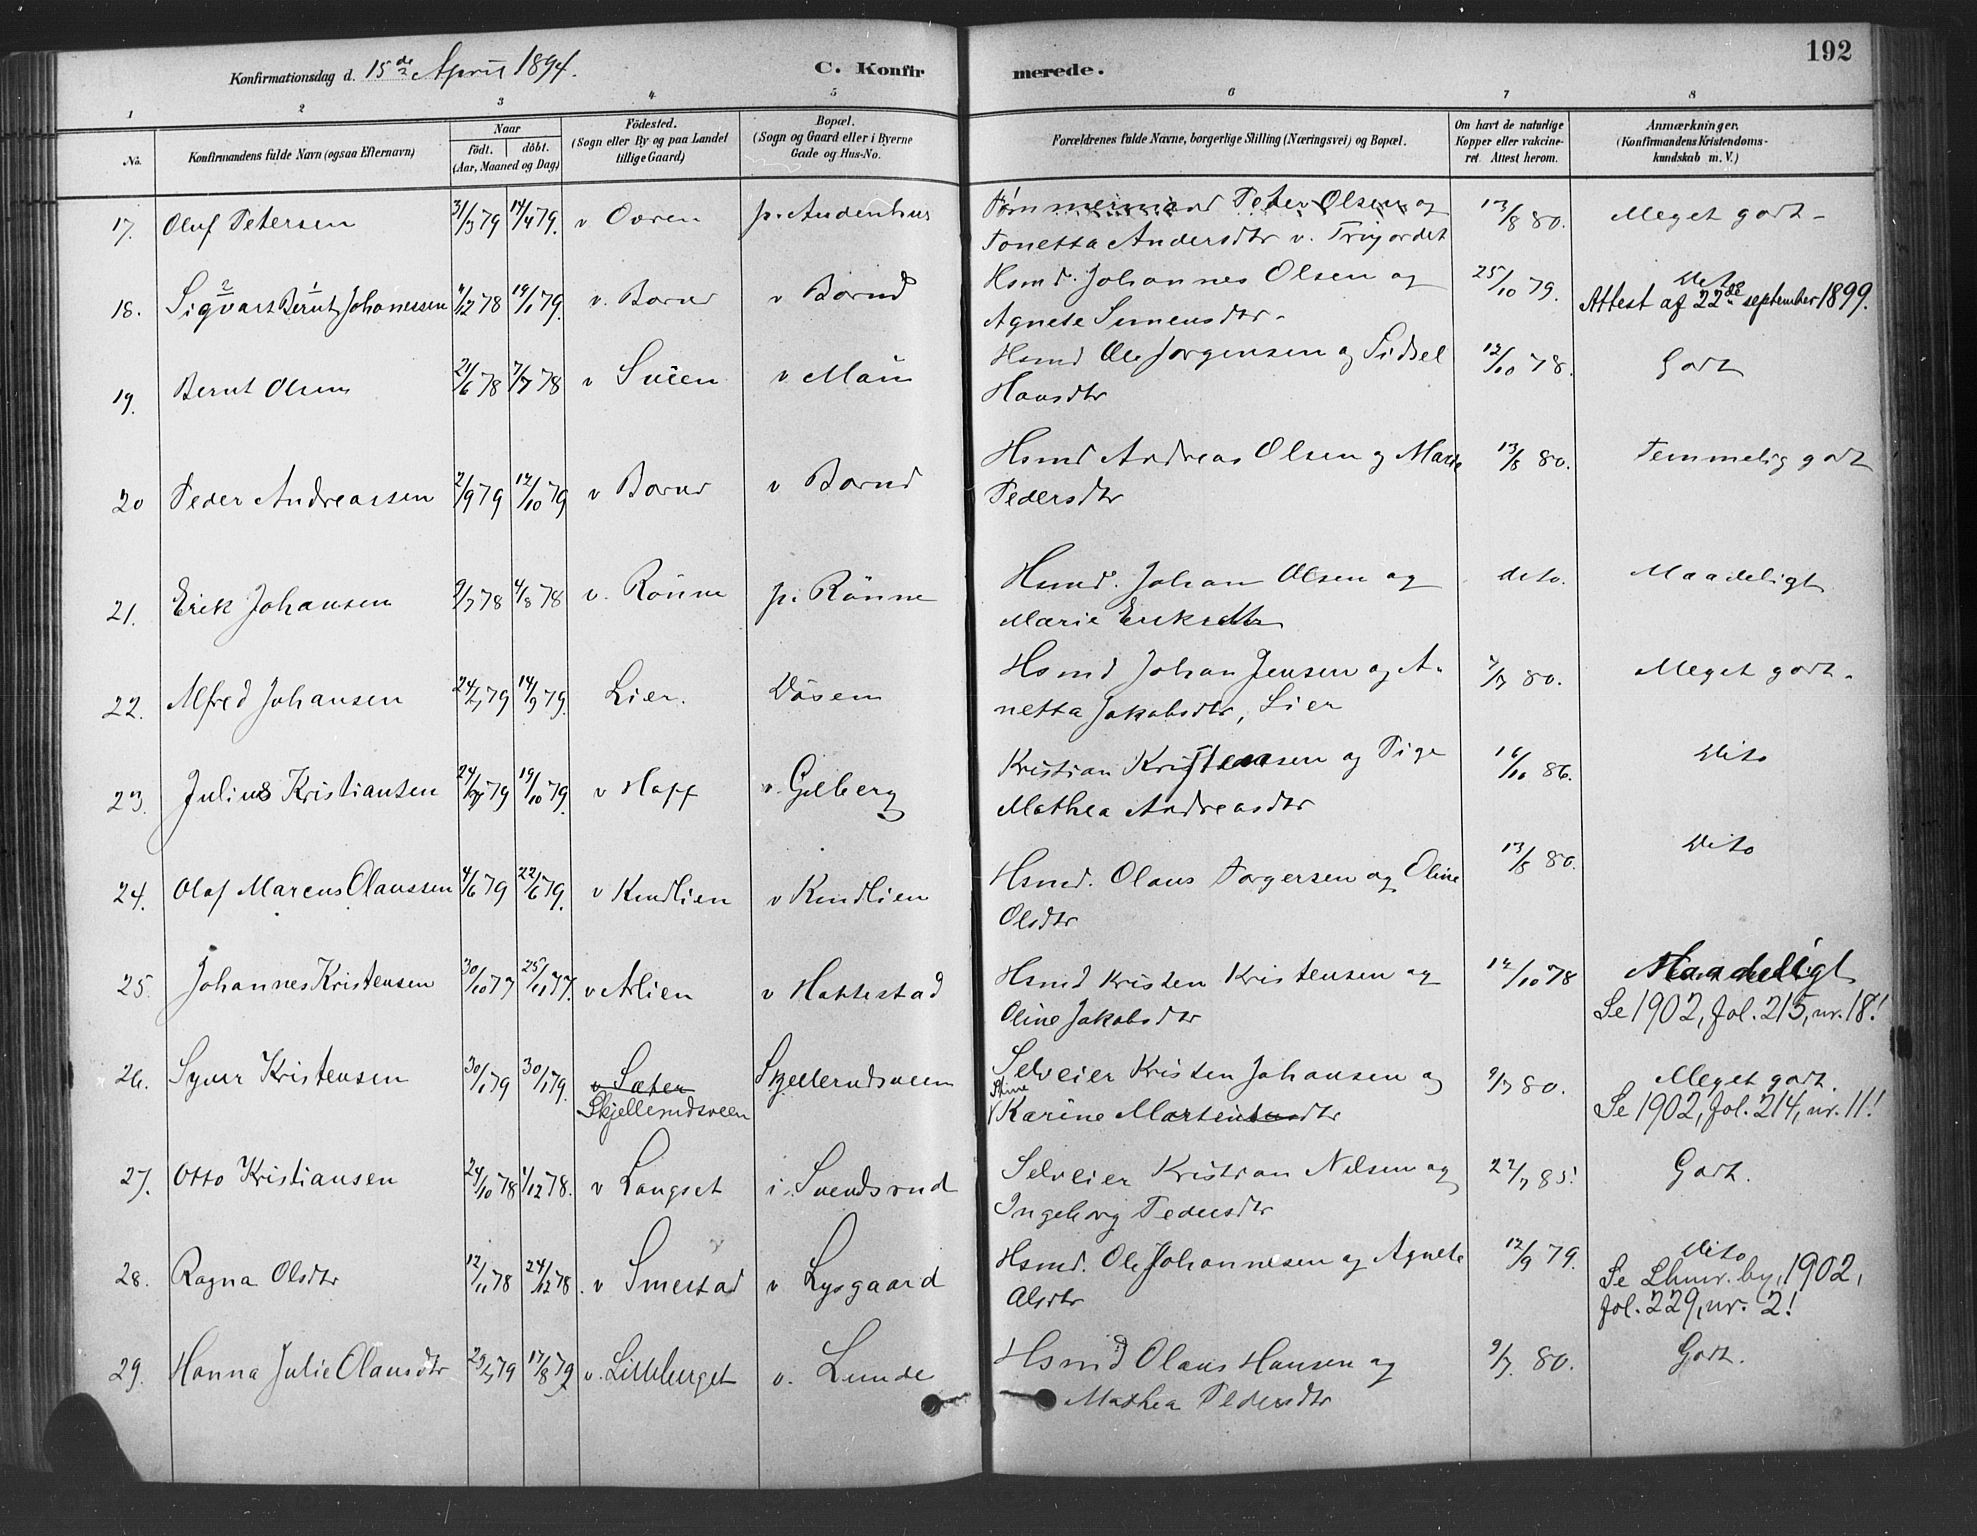 192
Konfirmationsdag d. 15de April 1894.
C. Konfir merede.
1 2 3 4 5 6 7 8
No.
Konfirmandens fulde Navn (ogsaa Efternavn)
Naar
födt. döbt.
(Aar, Maaned og Dag)
Födested.
(Sogn eller By og paa Landet
tillige Gaard)
Bopæl.
(Sogn og Gaard eller i Byerne
Gade og Hus-No.
Forældrenes fulde Navne, borgerlige Stilling (Næringsvei) og Bopæl.
Om havt de naturlige
Kopper eller vakcine-
ret. Attest herom.
Anmærkninger.
(Konfirmandens Kristendoms-
kundskab m. V.)
17. Oluf Petersen 31/3 79 14/4 79. v Ovren Peter Olsen og 13/8 80. Meget godt-
Tonetta Andersdtr v.
18. Sigvart Bernt Johanessen /12 78 19/1 79. v. Borud v Borud Hsmd. Johannes Olsen og 25/10 79. Dito
Agnete Simensdtr- Attest af 22de september 1899.
19. Bernt Olsen /6 78 7/7 78 v Sveen v Hsmd Ole Jorgensen og Sidsel 12/10 78. Godt
Hansdtr
20 Peder Andreassen 2/9 79 12/10 79 v Borud v Borud Hsmd Andreas Olsen og Marte 13/8 80. Temmelig godt
Pedersdtr
21. Erik Johansen 2/7 78 4/8 78 v. Rönne p. Rönne Hsmd. Johan Olsen og deto. Maadeligt
Marie Eriksdtr
22. Alfred Johansen 24/ 79 14/9 79. Lier. Hsmd Johan Jensen og A- /7 80. Meget godt-
netta Jakobsdtr, Lier
23. Julius Kristiansen 24/ 79 19/10 79. v Hoff v. Gilberg Kristian Kristensen og Pige 16/10 86. Dito
Mathea Andreasdtr
24. Olaf Marcus Olaussen 4/6 79 22/6 79. v Kindlien v Kindlien Hsmd. Olaus Torgersen og Eline 13/8 80. Dito
Olsdtr
25. Johannes Kristensen 30/10 77 25/11 77. v Alien v Hattestad Hsmd Kristen Kristensen og 12/10 78 Maadeligt
Oline Jakobsdtr Se 1902, fol. 215, nr. 18!
26. Syver Kristensen 30/1 79 30/ 79. v Sæter Skjellerudsveen Selveier Kristen Johansen og 9/7 80. Meget godt.
Skjellerudsveen Stine
Karine Martinsdtr Se 1902, fol. 214, nr. 11!
27. Otto Kristiansen 24/10 78 1/12 78. v Langset i. Svendsrud Selveier Kristian Nilsen og 22/7 85. Godt.
Ingeborg Pedersdtr
28. Ragna Olsdtr 12/11 78 24/12 78. v Smestad v Lysgaard Hsmd. Ole Johannesen og Agnete 12/9 79. Dito
Olsdtr Se Lhmr. by, 1902,
fol. 229, nr. 2!
29. Hanna Julie Olausdtr 23/ 79 17/8 79 v. Lilleberget v. Lunde Hsmd Olaus Hansen og 9/7 80. Godt.
Mathea Pedersdtr